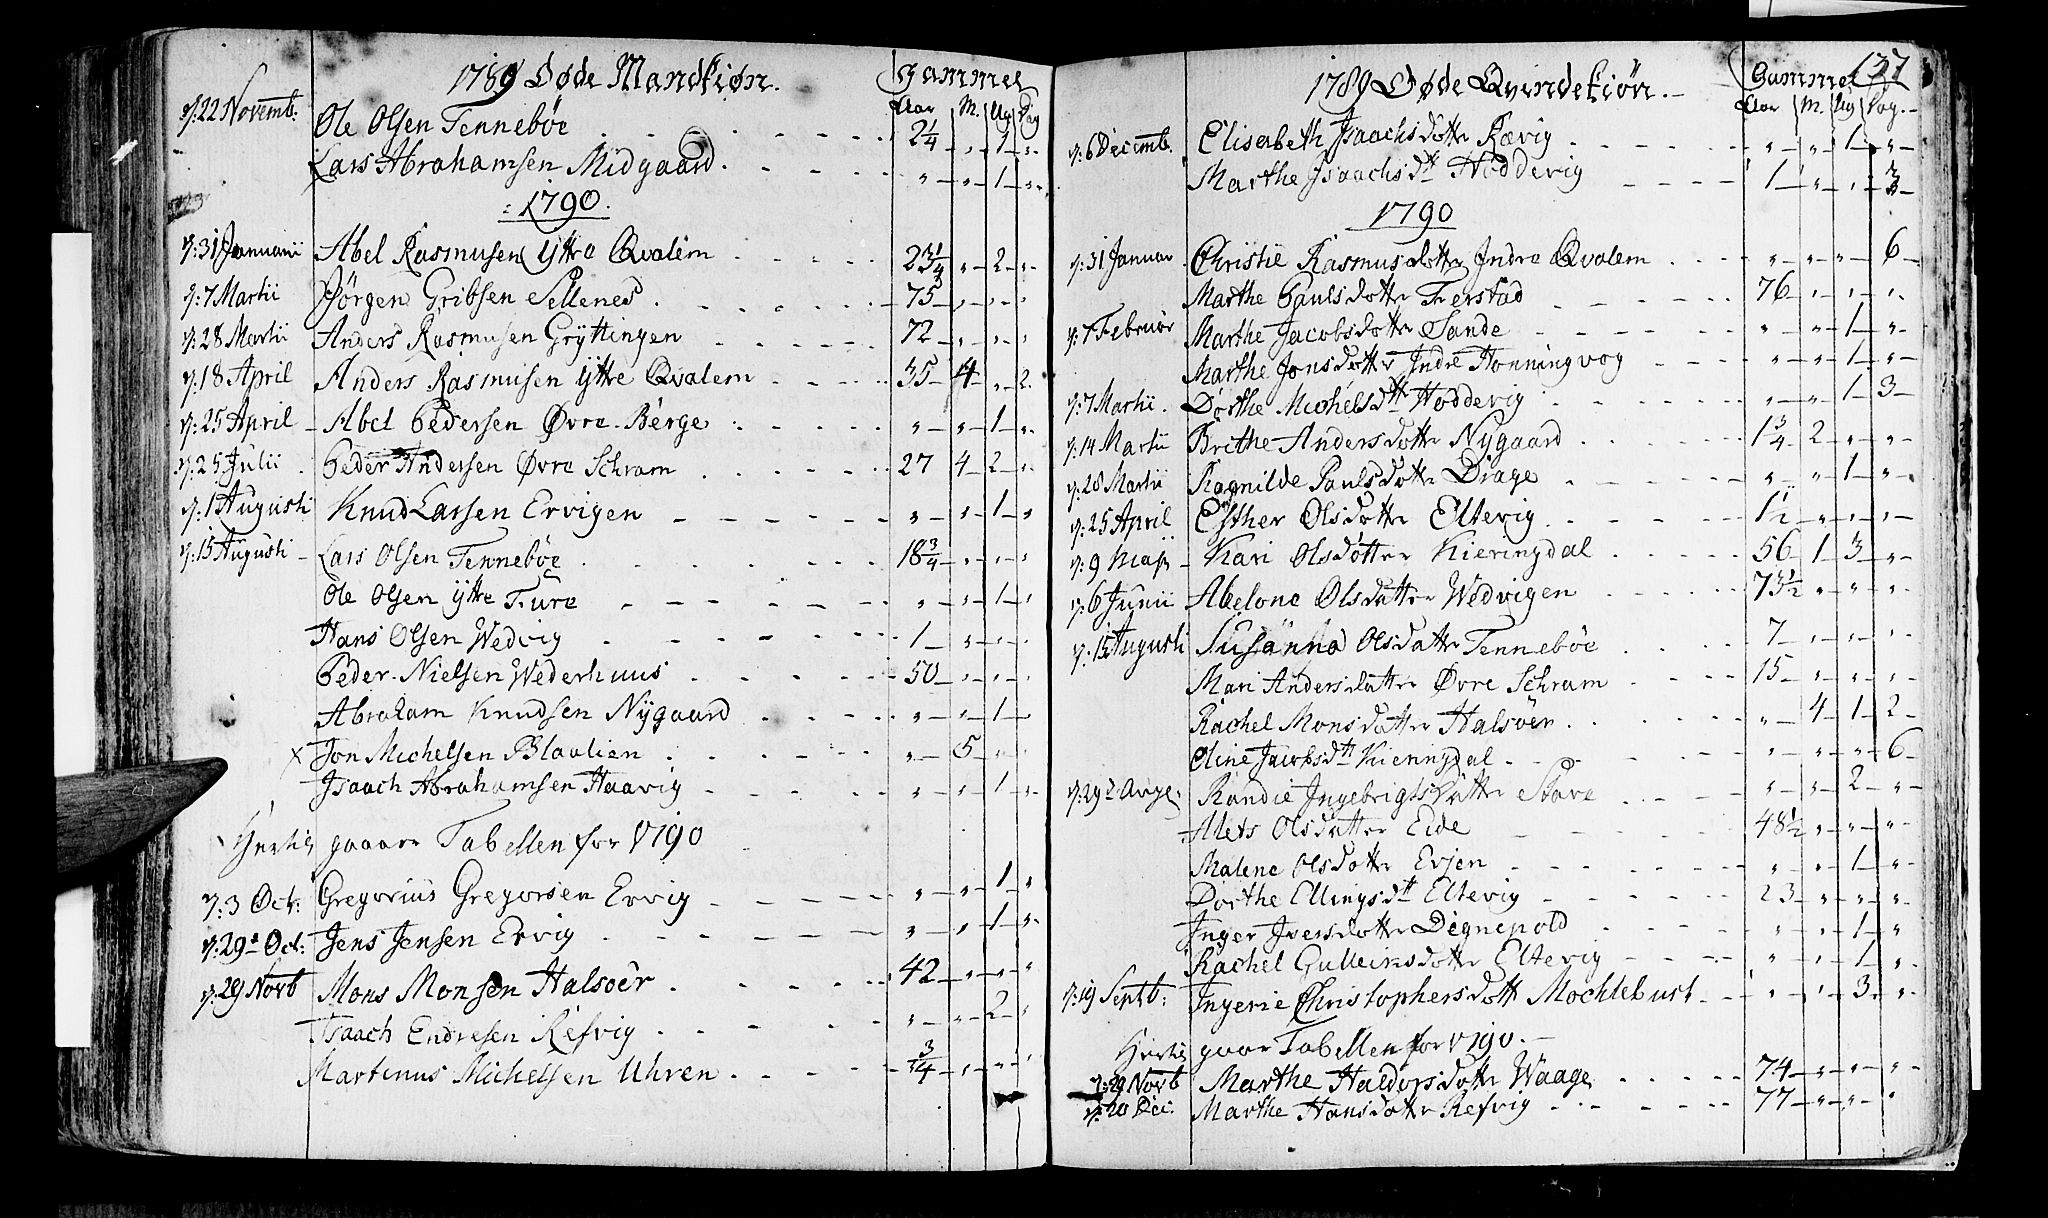 1789 Døde Mandkiøn.
Gammel
Aar M. Ug Dag
d: 22 Novemb: Ole Olsen Tennebøe 2 1/4 „ 1 „
Lars Abrahamsen Midgaard. „ „ 1 „
1790.
d: 31 Januarii Abel Rasmusen Yttre Qvalem 2 3/4 „ 2 „
d: 7 Martii Jørgen Gribsen Sellenes 75 „ „ „
d: 28 Martii Anders Rasmusen Gryttingen 72 „ „ „
d: 18 April Anders Rasmusen Yttre Qvalem 35 4 „ 2
d: 25 April Abel Pedersen Øvre Berge „ „ 1 „
d: 25 Julii Peder Andersen Øvre Schram 27 4 2 „
d: 1 Augusti Knud Larsen Ervigen „ „ 1 „
d: 15 Augusti Lars Olsen Tennebøe 18 3/4 „ „ „
Ole Olsen Yttre Fure „ „ 1 „
Hans Olsen Wedvig 1 „ „ „
Peder Nielsen Wederhuus 50 „ „ „
Abraham Knudsen Nygaard „ „ 1 „
x Jon Michelsen Blaalien „ 5 „ „
Isaach Abrahamsen Haavig „ „ 1 „
Hertil gaaer Tabellen for 1790
d: 3 Oct: Gregorius Gregorsen Ervig „ „ 1 „
d: 29 Oct: Jens Jensen Ervig „ „ 1 „
d: 29 Novb Mons Monsen Halsøer 42 „ „ „
Isaach Endresen Refvig „ „ 2 „
Martinus Michelsen Uhren 3/4 „ „ „
137
1789 Døde Qvindekiøn.
Gammel
Aar M. Ug Dag
d: 6 Decemb. Elisabeth Isaachsdotter Rævig „ „ 1 „
Marthe Isaachsdtt Hoddevig 1 „ „ 3
1790
d: 31 Januar Christie Rasmusdotter Indre Qvalem „ „ „ 6
Marthe Paulsdotter Ferstad 76 „ „ „
d: 7 Februar Marthe Jacobsdotter Sande „ „ 1 „
Marthe Jonsdotter Indre Honningvog „ „ 1 „
d: 7 Martii. Dorthe Michelsdtt Hoddevig „ „ 1 3
d: 14 Martii Brethe Andersdotter Nygaard 1 3/4 2 „ „
d: 28 Martii Ragnilde Paulsdotter Drage „ „ 1 „
d: 25 April Esther Olsdotter Eltevig 1 1/2 „ „ „
d: 9 Maji Kari Olsdotter Kieringdal 56 1 3 „
d: 6 Junii Abelone Olsdatter Wedvigen 73 1/2 „ „ „
d: 15 Augusti Susanna Olsdatter Tennebøe 7 „ „ „
Mari Andersdatter Øvre Schram 15 „ „ „
Rachel Monsdatter Halsøer „ 4 1 2
Eline Jacobsdtt Kieringdal „ „ „ 6
d: 29 Aug. Randie Ingebrigtsdatter Stave „ „ 2 „
Alets Olsdatter Eide 48 1/2 „ „ „
Malene Olsdotter Erjen „ „ 1 „
Dorthe Ellingsdtt Eltevig 23 „ „ „
Inger Iversdotter Degnepold „ „ 1 „
Rachel Gulleinsdotter Eltevig „ „ 1 „
d: 19 Septb: Ingerie Christophersdott Mochlebust „ „ 3 „
Hertil gaar Tabellen for 1790.
d: 29 Novb Marthe Haldorsdotter Waage 74 „ „ „
d: 20 Dec: Marthe Hansdotter Refvig 77 „ „ „